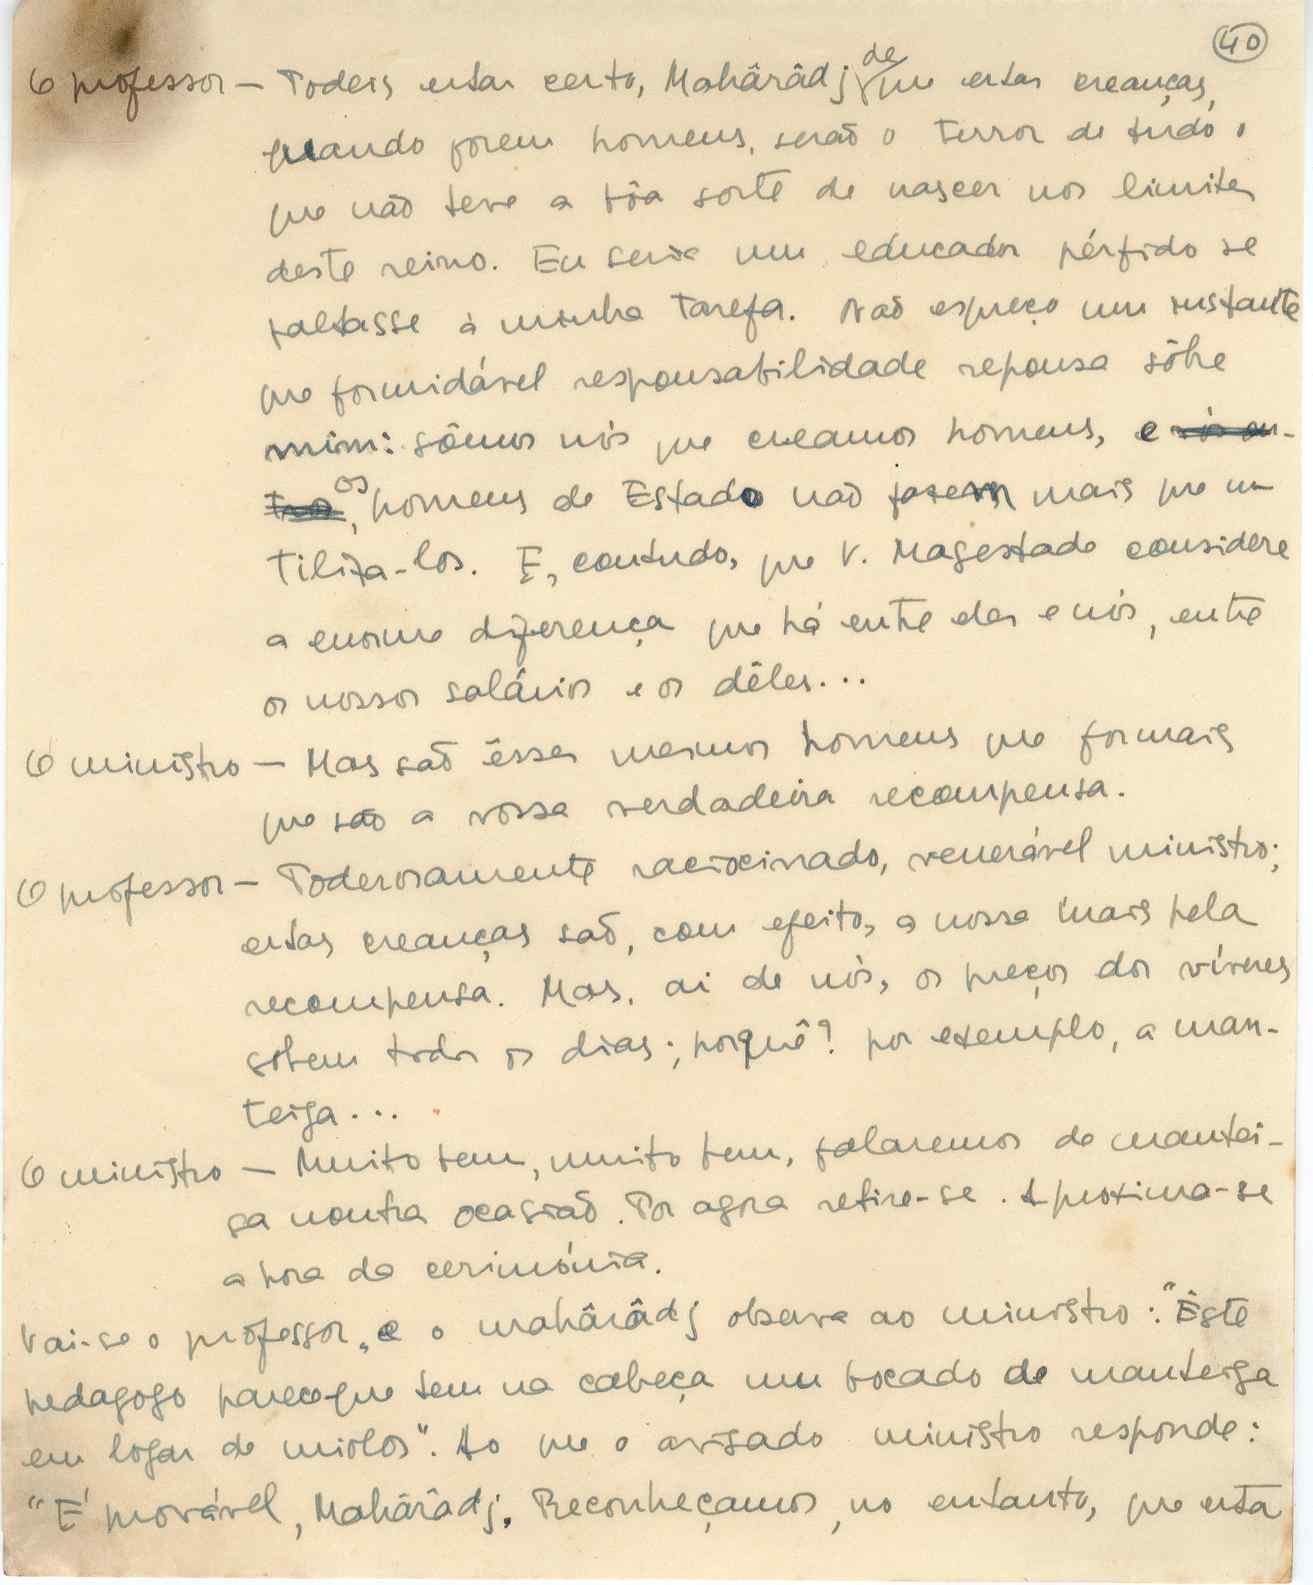 40
O professor — Podeis estar certo, Mahârâdj, de que estas creanças,
quando forem homens, serão o terror de tudo o
que não teve a bôa sorte de nascer nos limites
deste reino. Eu seria um educador pérfido se
faltasse à minha tarefa. Não esqueço um instante
que formidável responsabilidade repousa sôbre
mim: sômos nós que creamos homens, e ~~vós ou-~~
~~tros~~, os homens de Estado não fazem mais que u-
tilizá-los. E, contudo, que V. Magestade considere
a enorme diferença que há entre eles e nós, entre
os nossos salários e os dêles...
O ministro — Mas são êsses mesmos homens que formais
que são a vossa verdadeira recompensa.
O professor — Poderosamente raciocinado, venerável ministro;
estas creanças são, com efeito, a nossa mais bela
recompensa. Mas, ai de nós, os preços dos víveres
sobem todos os dias; porquê? por exemplo, a man-
teiga...
O ministro — Muito bem, muito bem, falaremos de mantei-
ga noutra ocasião. Por agora retire-se. Aproxima-se
a hora da cerimónia.
Vai-se o professor, e o mahârâdj observa ao ministro: "Êste
pedagogo parece que tem na cabeça um bocado de manteiga
em logar de miolos". Ao que o avisado ministro responde:
"É provável, Mahârâdj. Reconheçamos, no entanto, que esta